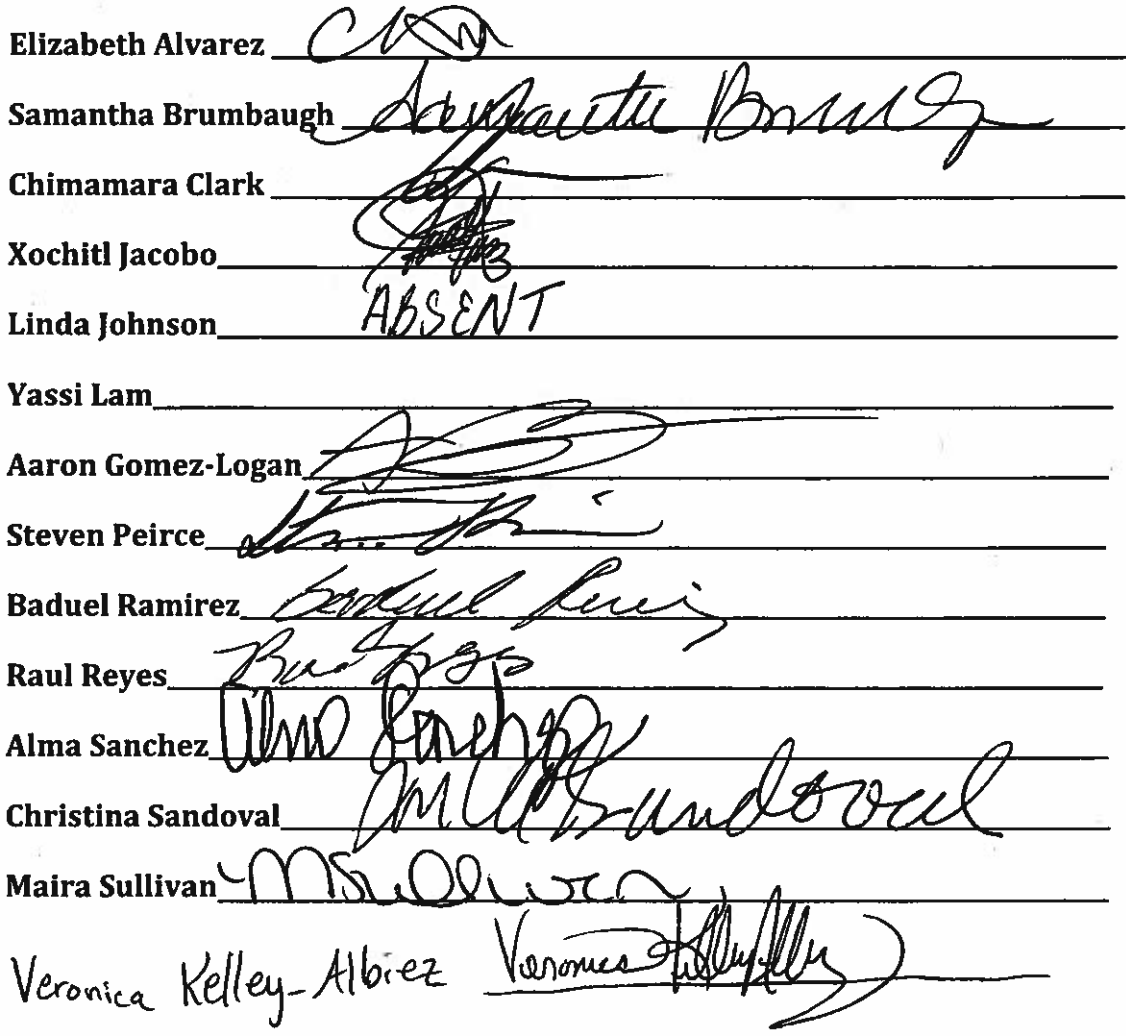 Elizabeth Alvarez
Samantha Brumbaugh Samantha
Chimamara Clark
Xochitl Jacobo
Linda Johnson ABSENT
Yassi Lam
Aaron Gomez-Logan
Steven Peirce
Baduel Ramirez
Raul Reyes
Alma Sanchez Alma Sanchez
Christina Sandoval Sandoval
Maira Sullivan MSullivan
Veronica Kelley-Albiez Veronica